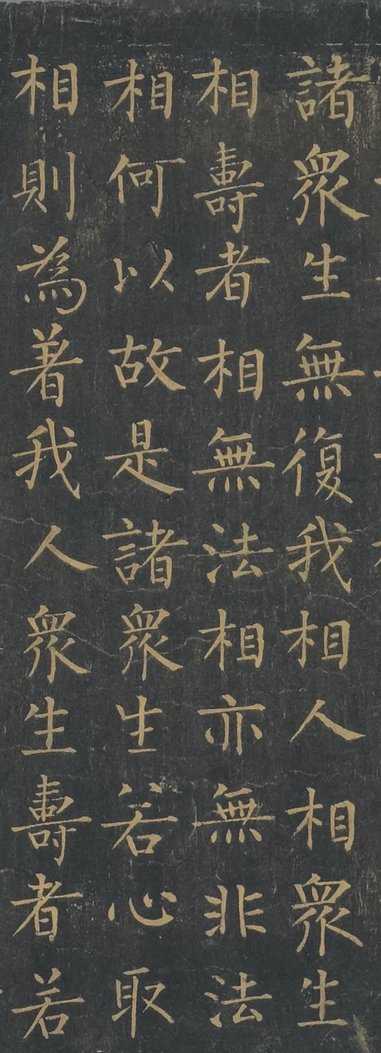 諸衆生無復我相人相衆生
相壽者相無法相亦無非法
相何以故是諸衆生若心取
相則為著我人衆生壽者若